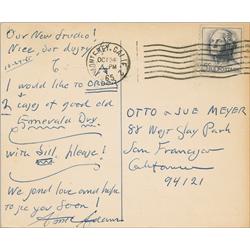 Our New Studio!
Nice, but dusty
I would like to ORDER
2 cases of good old
Emerald Dry.
with bill, please!
We send love and hope
to see you soon!
MONTEREY, CALIF.
PM
OTTO & SUE MEYER
88 West Clay Park
San Francisco
California
94121